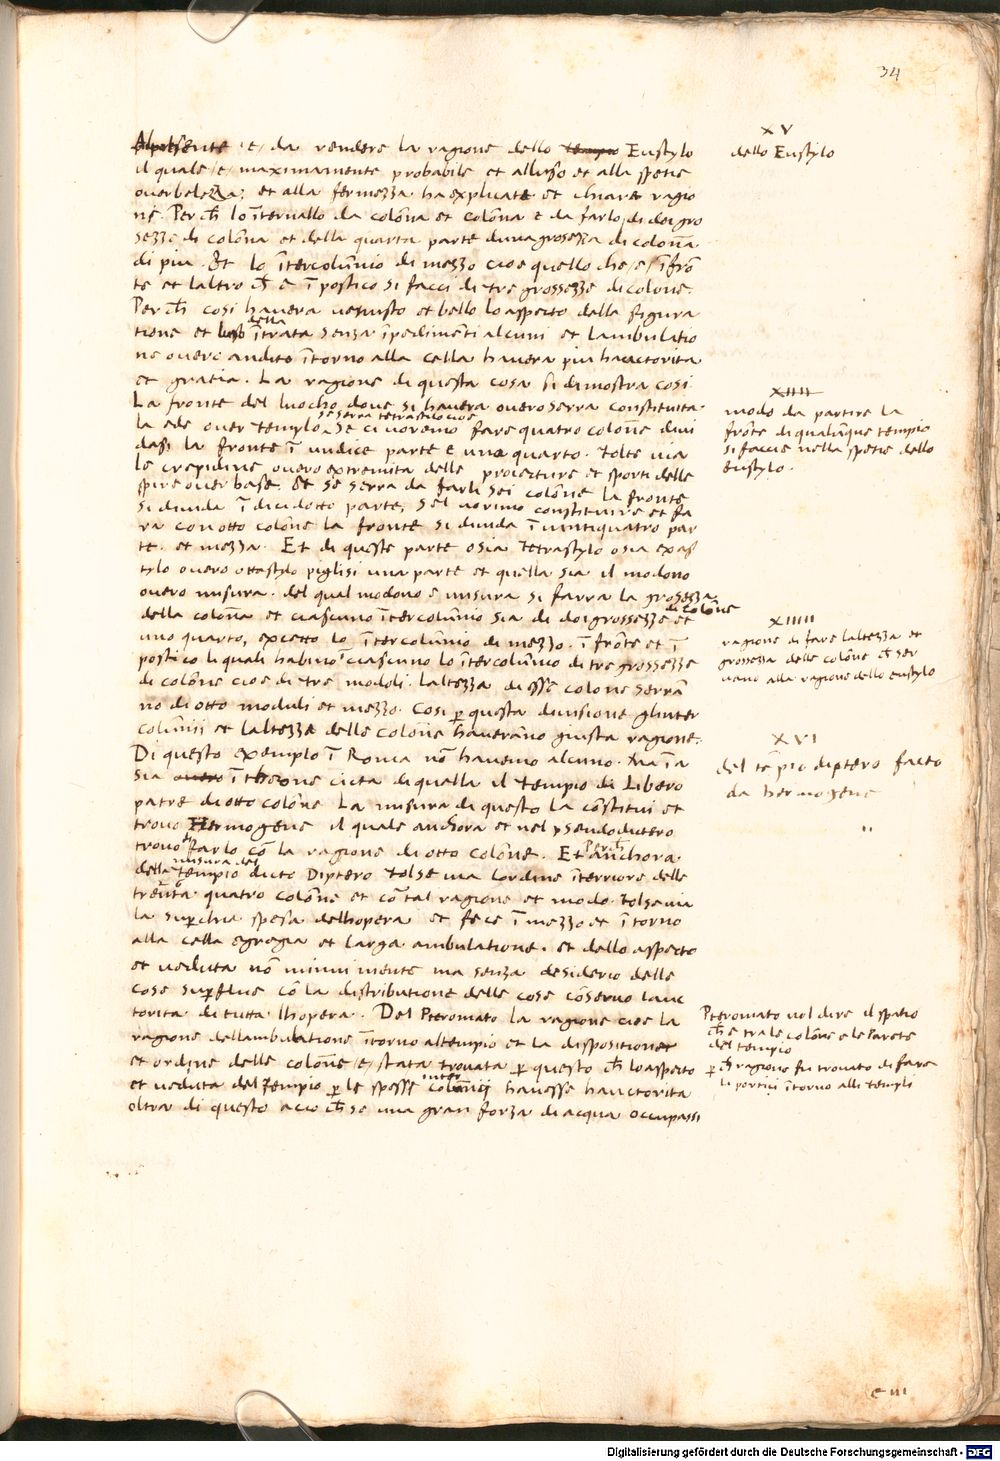 34
XV
dello Eustylo
Alpresente e da rendere la ragione dello tempio Eustylo
il quale e maximamente probabile et alluso et alla spetie
over beleza: et alla fermezza ha explicate et chiare ragio
ne. Per ch lo ītervallo da colōna et colōna e da farlo di doi gro
sezze di colōna et della quarta parte duna grossezza di colōna
di piu. Et lo ītercolūnio di mezzo cioe quello che e ī frō
te et laltro ch e ī postico si facci di tre grossezze di colōne.
Per ch cosi havera venusto et bello lo aspecto della figura
tione et luso della ītrata senza īpedimēti alcuni et lambulatio
ne overo andito ītorno alla cella havera piu hauctorita
et gratia. La ragione di questa cosa si dimostra cosi
La fronte del luocho dove si havera overo serra constituita
se serra tetrastilo cioe
la ede over templo, se ci voremo fare quatro colōne divi
dasi la fronte ī undice parte e uno quarto. Tolte via
le crepidine overo extremita delle proiecture et sporti delle
spire over base. Et se serra da farli sei colōne la fronte
si divida ī dicidotto parte, se l vorimo constituire et fa
ra con otto colōne la fronte si divida ī vintiquatro par
te. et mezza. Et di queste parte o sia tetrastylo o sia exas
tylo overo ottastylo piglisi una parte et quella sia il modono
overo misura. del qual modono e misura si farra la grosezza
di colōne
della colōna et ciascuno ītercolūnio sia di doi grossezze et
uno quarto, excetto lo ītercolūnio di mezzo. ī frōte et ī
postico li quali habino ciascuno lo ītercolūnio di tre grossezze
di colōne cioe di tre modoli. laltezza di esse colone serran
no di otto moduli et mezzo. Cosi p questa divisione glinter
colūnii et laltezze delle colōne haverāno giusta ragione.
Di questo exemplo ī Roma nō havemo alcuno. Ma ī a
sia overo ī theone cicta di qualla il tempio di Libero
patre di otto colōne La misura di questo la cōstitui et
trovo Hermogene il quale anchora et nel pseudodiptero
trovo farlo cō la ragione di otto colōne. Et Perch anchora
misura del
della tempio dicto Diptero tolse via lordine īterriore delle
trenta quatro colōne et cō tal ragione et modo tolse via
la supchia spesa delhopera et fece ī mezzo et ītorno
alla cella egregia et larga ambulatione. et dello aspecto
et veduta nō minui niente ma senza desiderio delle
cose supflue cō la distributione delle cose cōservo lauc
torita di tutta lhopera. Del Pteromato la ragione cioe la
ragione dellambulatione ītorno al tempio et la dispositione
et ordine delle colōne e stata trovata p questo ch lo aspecto
inter
et veduta del tempio p le spesse colūnii havesse hauctorita
oltra di questo accio ch se una gran forza di acqua occupassi
XIIII
modo da partire la
frōte di qualūnque tempio
si faccie nella spetie dello
eustylo.
XIIIII
ragione di fare laltezza et
grossezza delle colōne ch ser
viano alla ragione dello eustylo
XVI
del tēpio diptero facto
da hermogene
Pteromato vol dire il spatio
ch e tra le colōne e le Parete
del tempio
p ch ragione fu trovato di fare
li portici ītorno alli templi
e iii
Digitalisierung gefördert durch die Deutsche Forschungsgemeinschaft - DFG